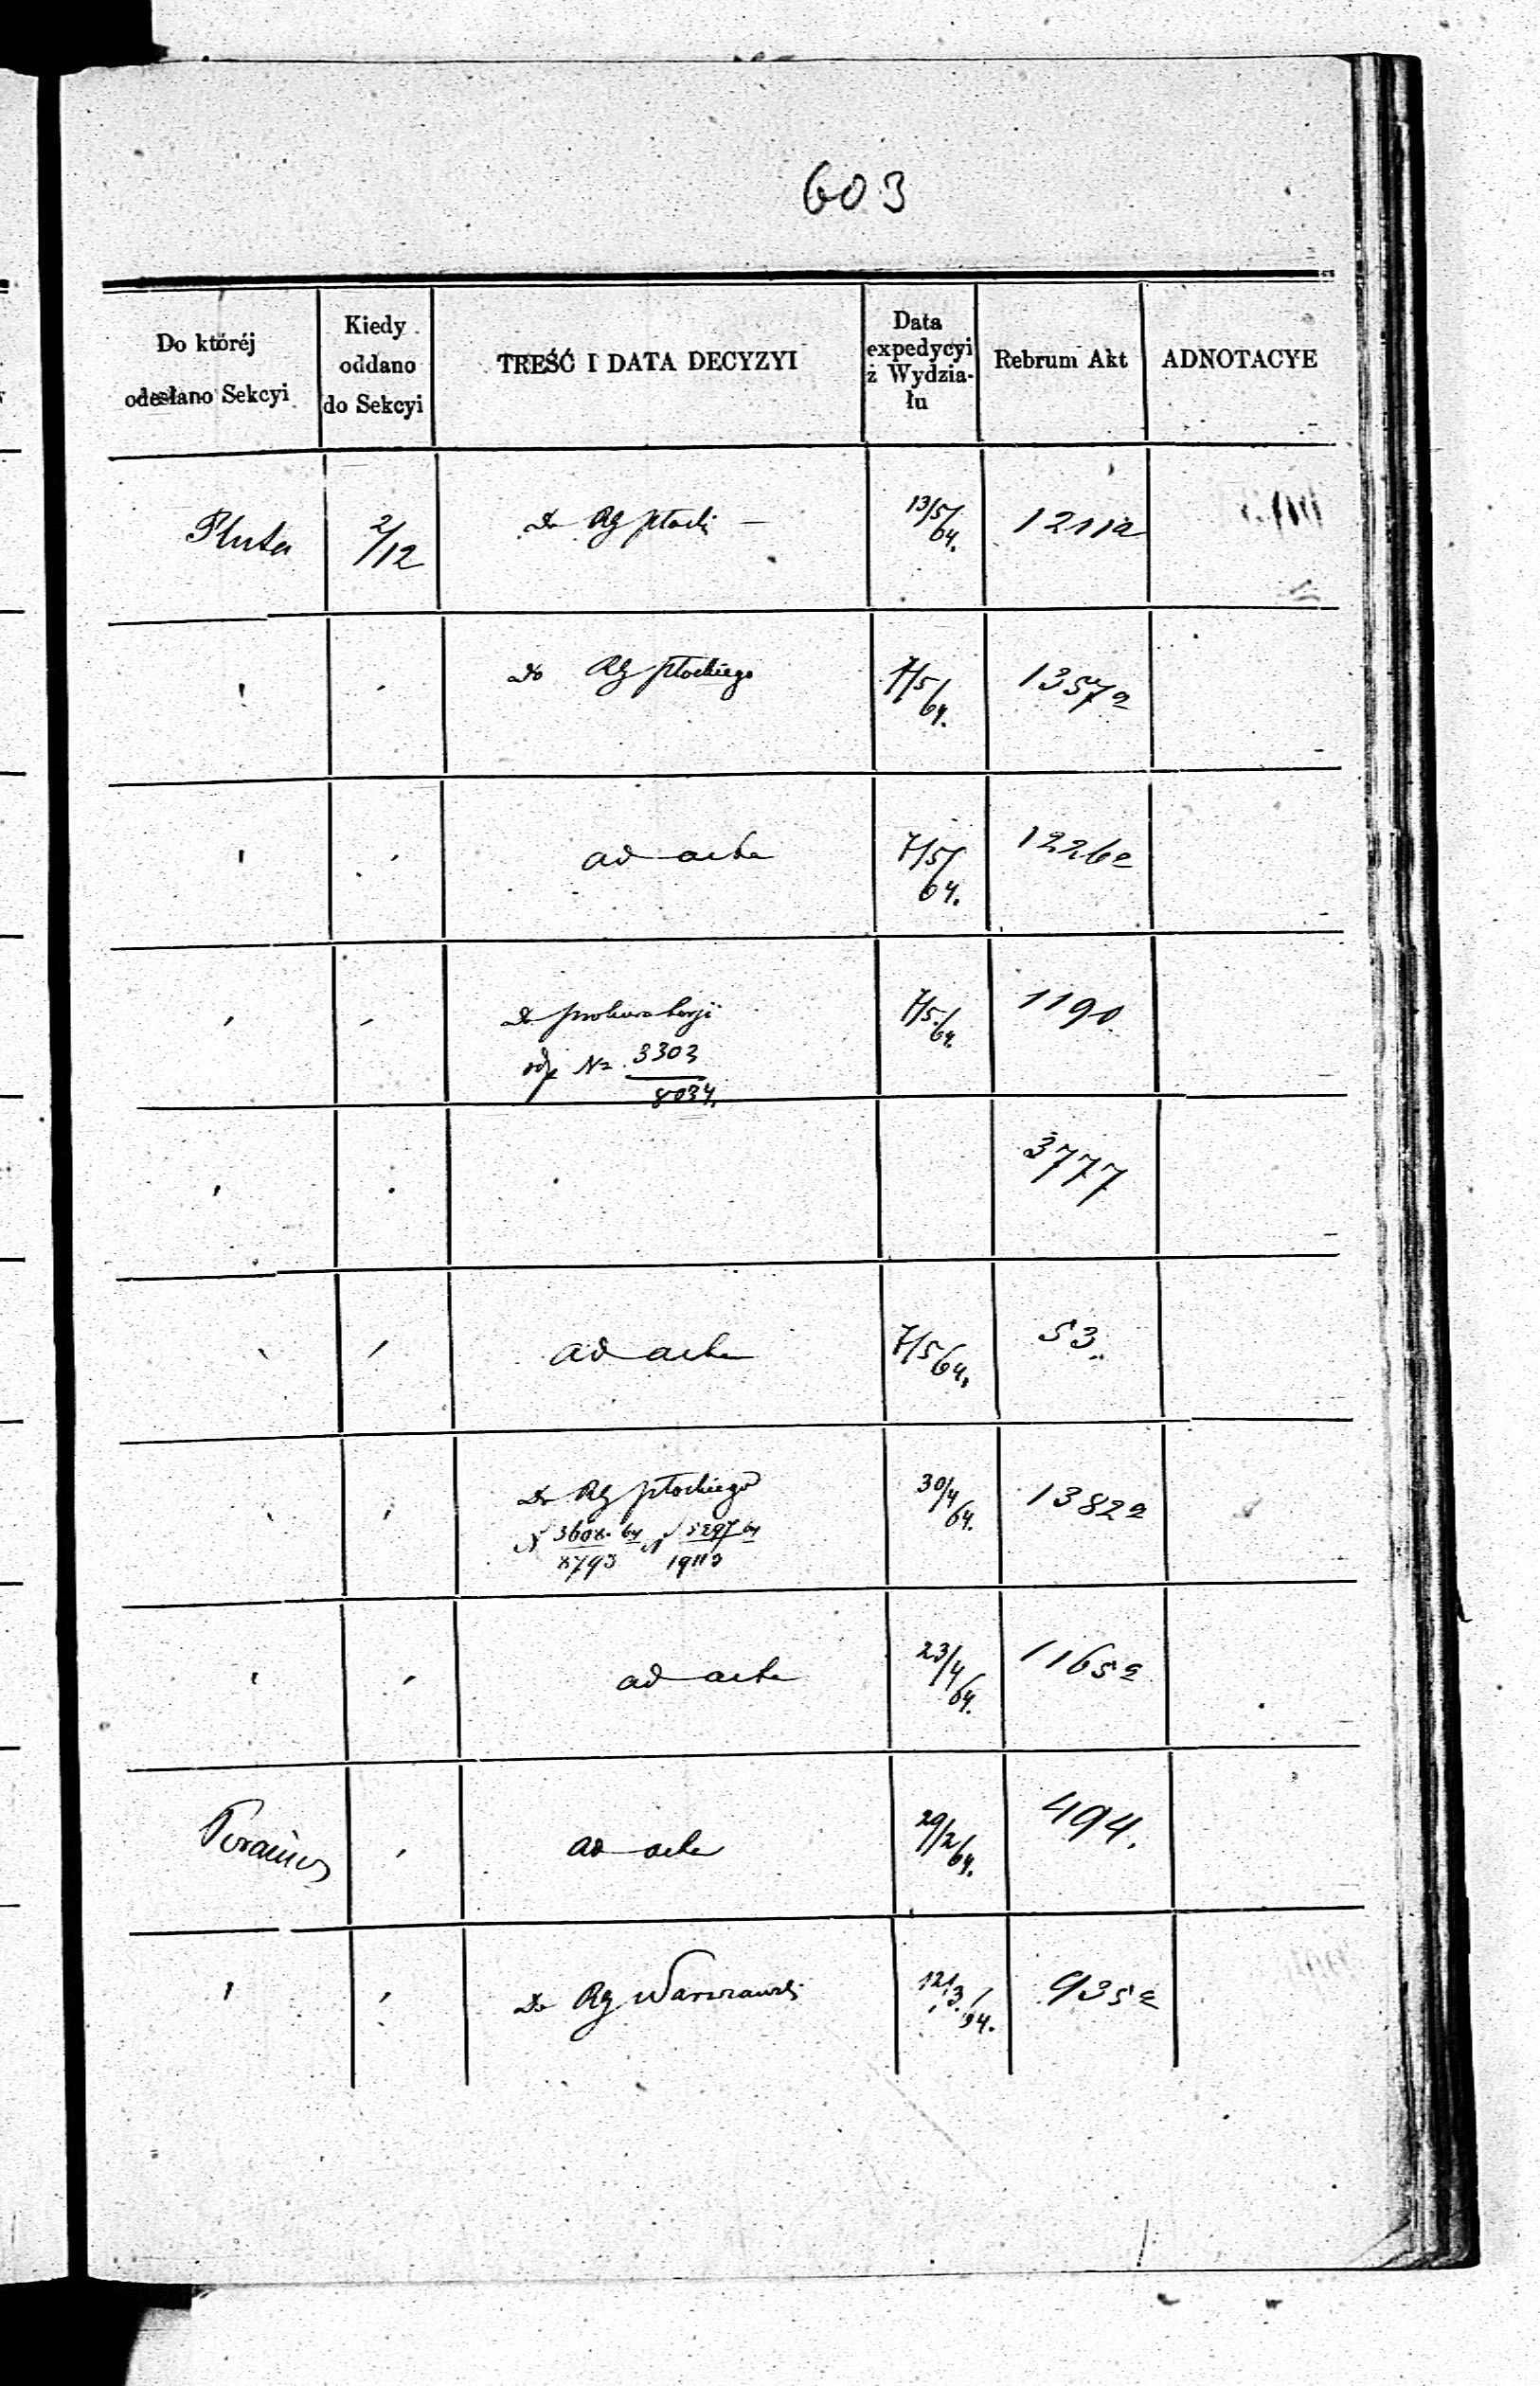 603
Do któréj odesłano Sekcyi
Kiedy oddano do Sekcyi
TREŚĆ I DATA DECYZYI
Data expedycyi z Wydziału
Rebrum Akt
ADNOTACYE
Pluta 2/12 Do RG płocki — 13/5/64. 1211a
" " Do RG płockiego 7/5/64. 1357a
" " ad acta 7/5/64. 1226a
" " Do prokuratorji 7/5/64 1190
odp No 3303/8034.
" " 3777
" " ad acta 7/5/64. 53.
" " Do RG płockiego 30/4/64. 1382a
N 3608. 64/8793 N 5297 64/19113
" " ad acta 23/4/64. 1165a
" ad acta 29/2/64. 494.
" " Do RG Warszawski 12/3/64. 935a